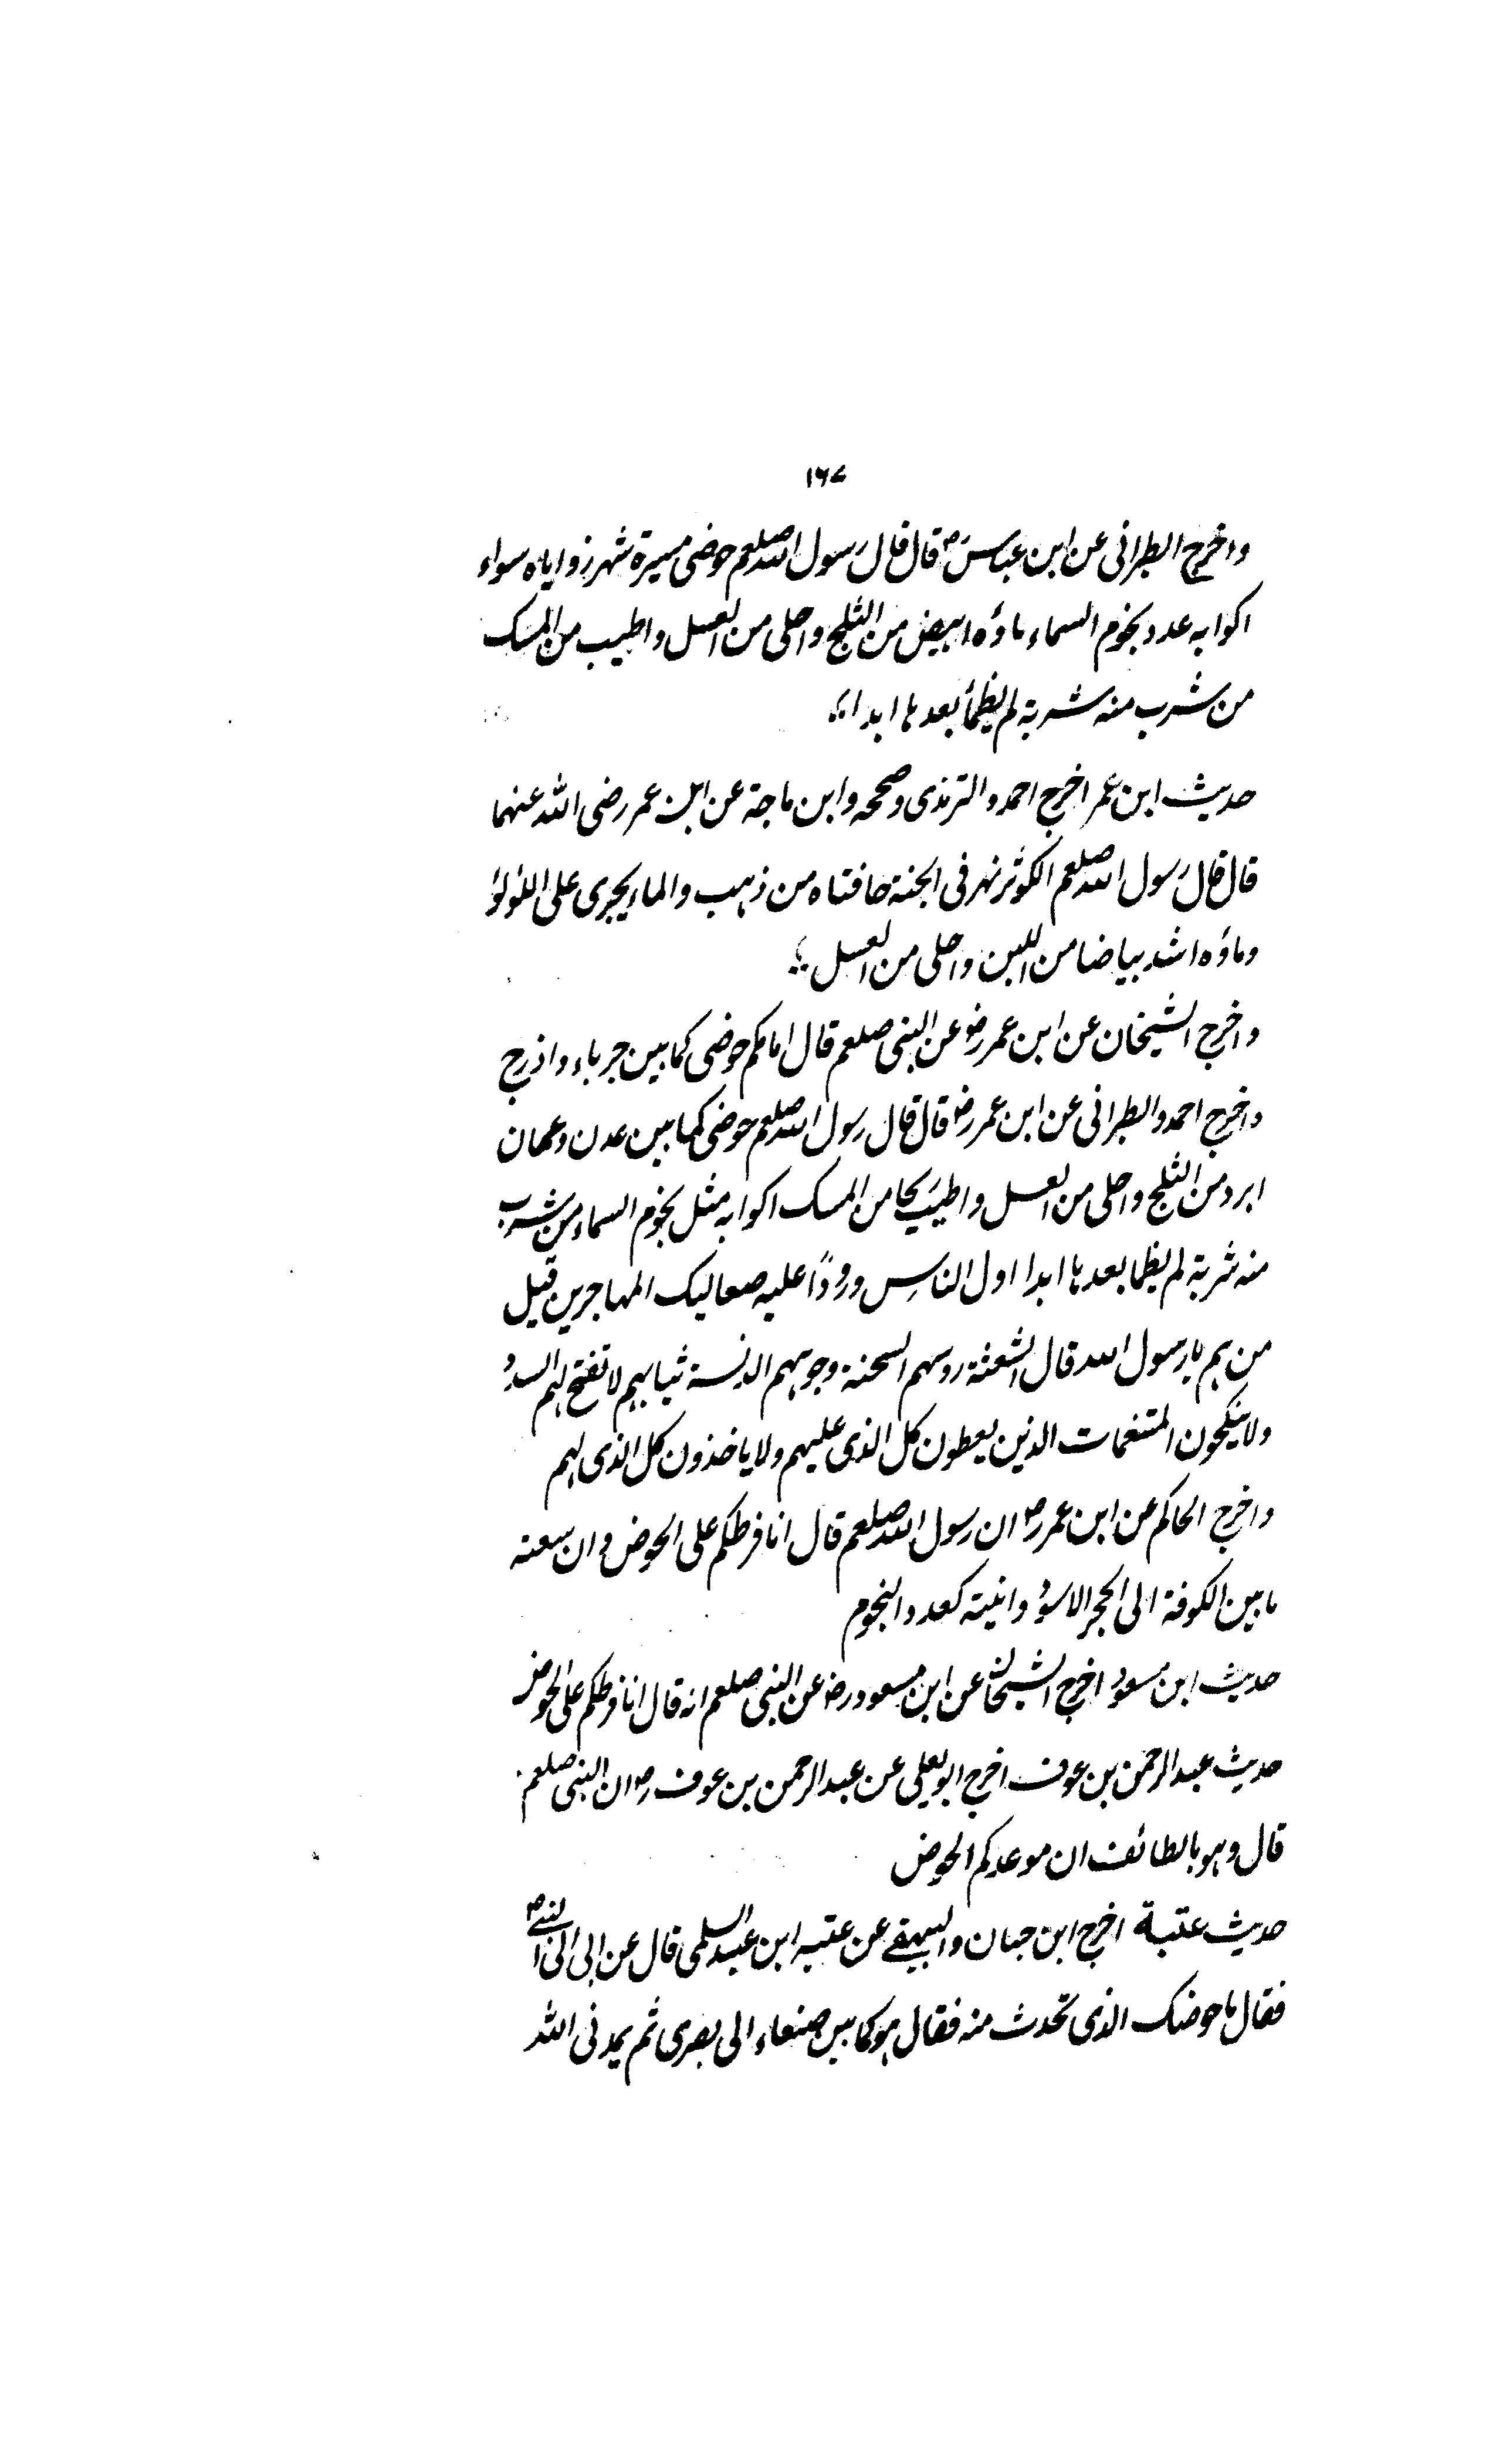 ۱۶۷
واخرج الطبرانی عن ابن عباسؓ قال قال رسول اللہ صلعم حوضی مسیرۃ شہر زوایاہ سواء
اکوابہ عدد نجوم السماء ماؤہ ابیض من الثلج واحلی من العسل واطیب من المسک
من شرب منہ شربۃ لم یظمأ بعدہا ابدا؛
حدیث ابن عمر اخرج احمد والترمذی وصححہ وابن ماجۃ عن ابن عمر رضی اللہ عنہما
قال قال رسول اللہ صلعم الکوثر نہر فی الجنۃ حافتاہ من ذہب والماء یجری علی اللؤلؤ
وماؤہ اشد بیاضا من اللبن واحلی من العسل ؛
واخرج الشیخان عن ابن عمر رضؓ عن النبی صلعم قال امامکم حوضی کما بین جرباء واذرح
واخرج احمد والطبرانی عن ابن عمر رضؓ قال قال رسول اللہ صلعم حوضی کما بین عدن وعمان
ابرد من الثلج واحلی من العسل واطیب ریحا من المسک اکوابہ مثل نجوم السماء من شرب
منہ شربۃ لم یظما بعدہا ابدا اول الناس ورودًا علیہ صعالیک المہاجرین قیل
من ہم یا رسول اللہ قال الشعثۃ روسہم السحنۃ وجوہہم الدنسۃ ثیابہم لا تفتح لہم السدد
ولا ینکحون المتنعمات الذین یعطون کل الذی علیہم ولا یاخذون کل الذی لہم
واخرج الحاکم عن ابن عمرؓ ان رسول اللہ صلعم قال انا فرطکم علی الحوض وان سعتہ
ما بین الکوفۃ الی الحجر الاسود وانیتہ کعدد النجوم
حدیث ابن مسعود اخرج الشیخان عن ابن مسعود رضؓ عن النبی صلعم انہ قال انا فرطکم علی الحوض
حدیث عبدالرحمن بن عوف اخرج ابو یعلی عن عبدالرحمن بن عوفؓ ان النبی صلعم
قال وہو بالطائف ان موعدکم الحوض
حدیث عتبۃ اخرج ابن حبان والبیہقے عن عتبہ ابن عبد السلمی قال الی النبیؐ
فقال ما حوضک الذی تحدث منہ فقال ہو کما بین صنعاء الی بصری ثم یمدنی اللہ